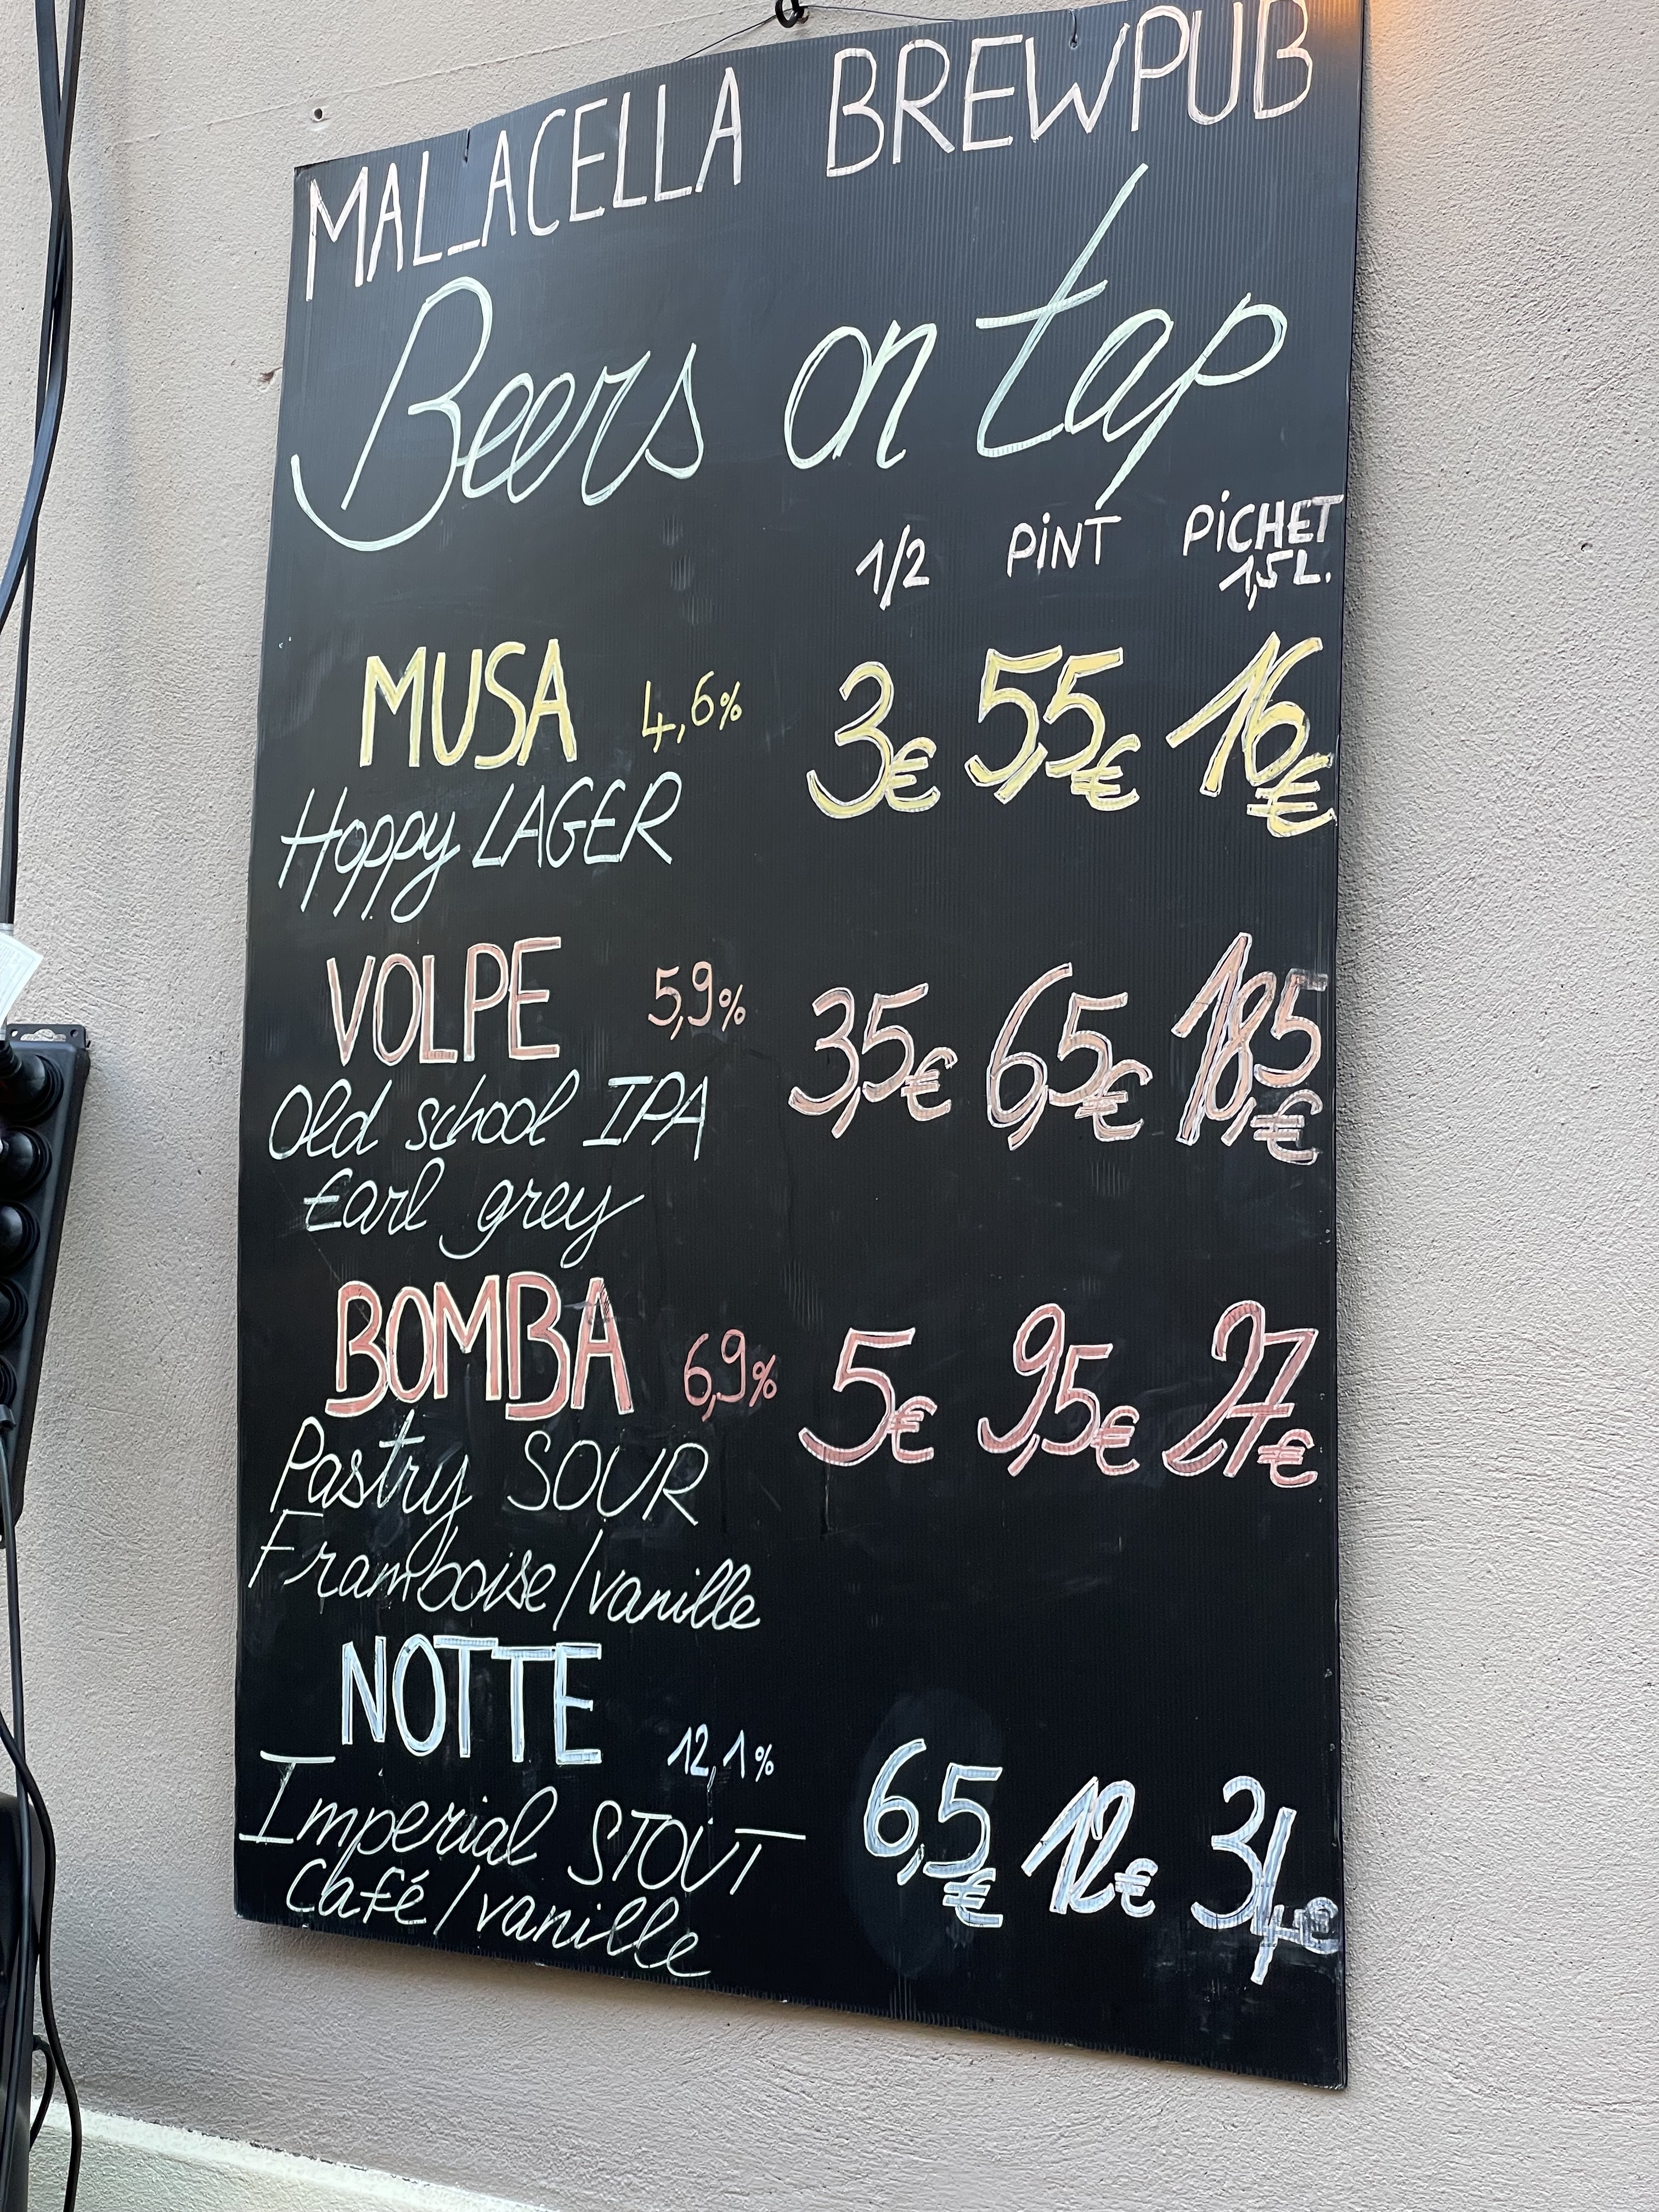 MAL_ACELLA BREWPUB
Beers on tap
1/2 PiNT PiCHET
1,5L.
MUSA 4,6% 3€ 5,5€ 16€
Hoppy LAGER
VOLPE 5,9% 3,5€ 6,5€ 18,5€
Old school IPA
Earl grey
BOMBA 6,9% 5€ 9,5€ 27€
Pastry SOUR
Framboise/vanille
NOTTE 12,1% 6,5€ 12€ 34€
Imperial STOUT
Café/vanille